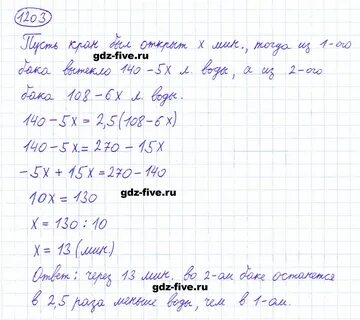 1203
Пусть кран был открыт х мин., тогда из 1-ого
gdz-five.ru
бака вытекло 140-5х л. воды, а из 2-ого
бака 108-6х л. воды.
gdz-five.ru
140-5х = 2,5(108-6х)
140-5х = 270-15х
gdz-five.ru
-5х + 15х = 270-140
10х = 130
gdz-five.ru
х = 130 : 10
х = 13 (мин)
gdz-five.ru
Ответ: через 13 мин. во 2-ом баке останется
в 2,5 раза меньше воды, чем в 1-ом.
gdz-five.ru